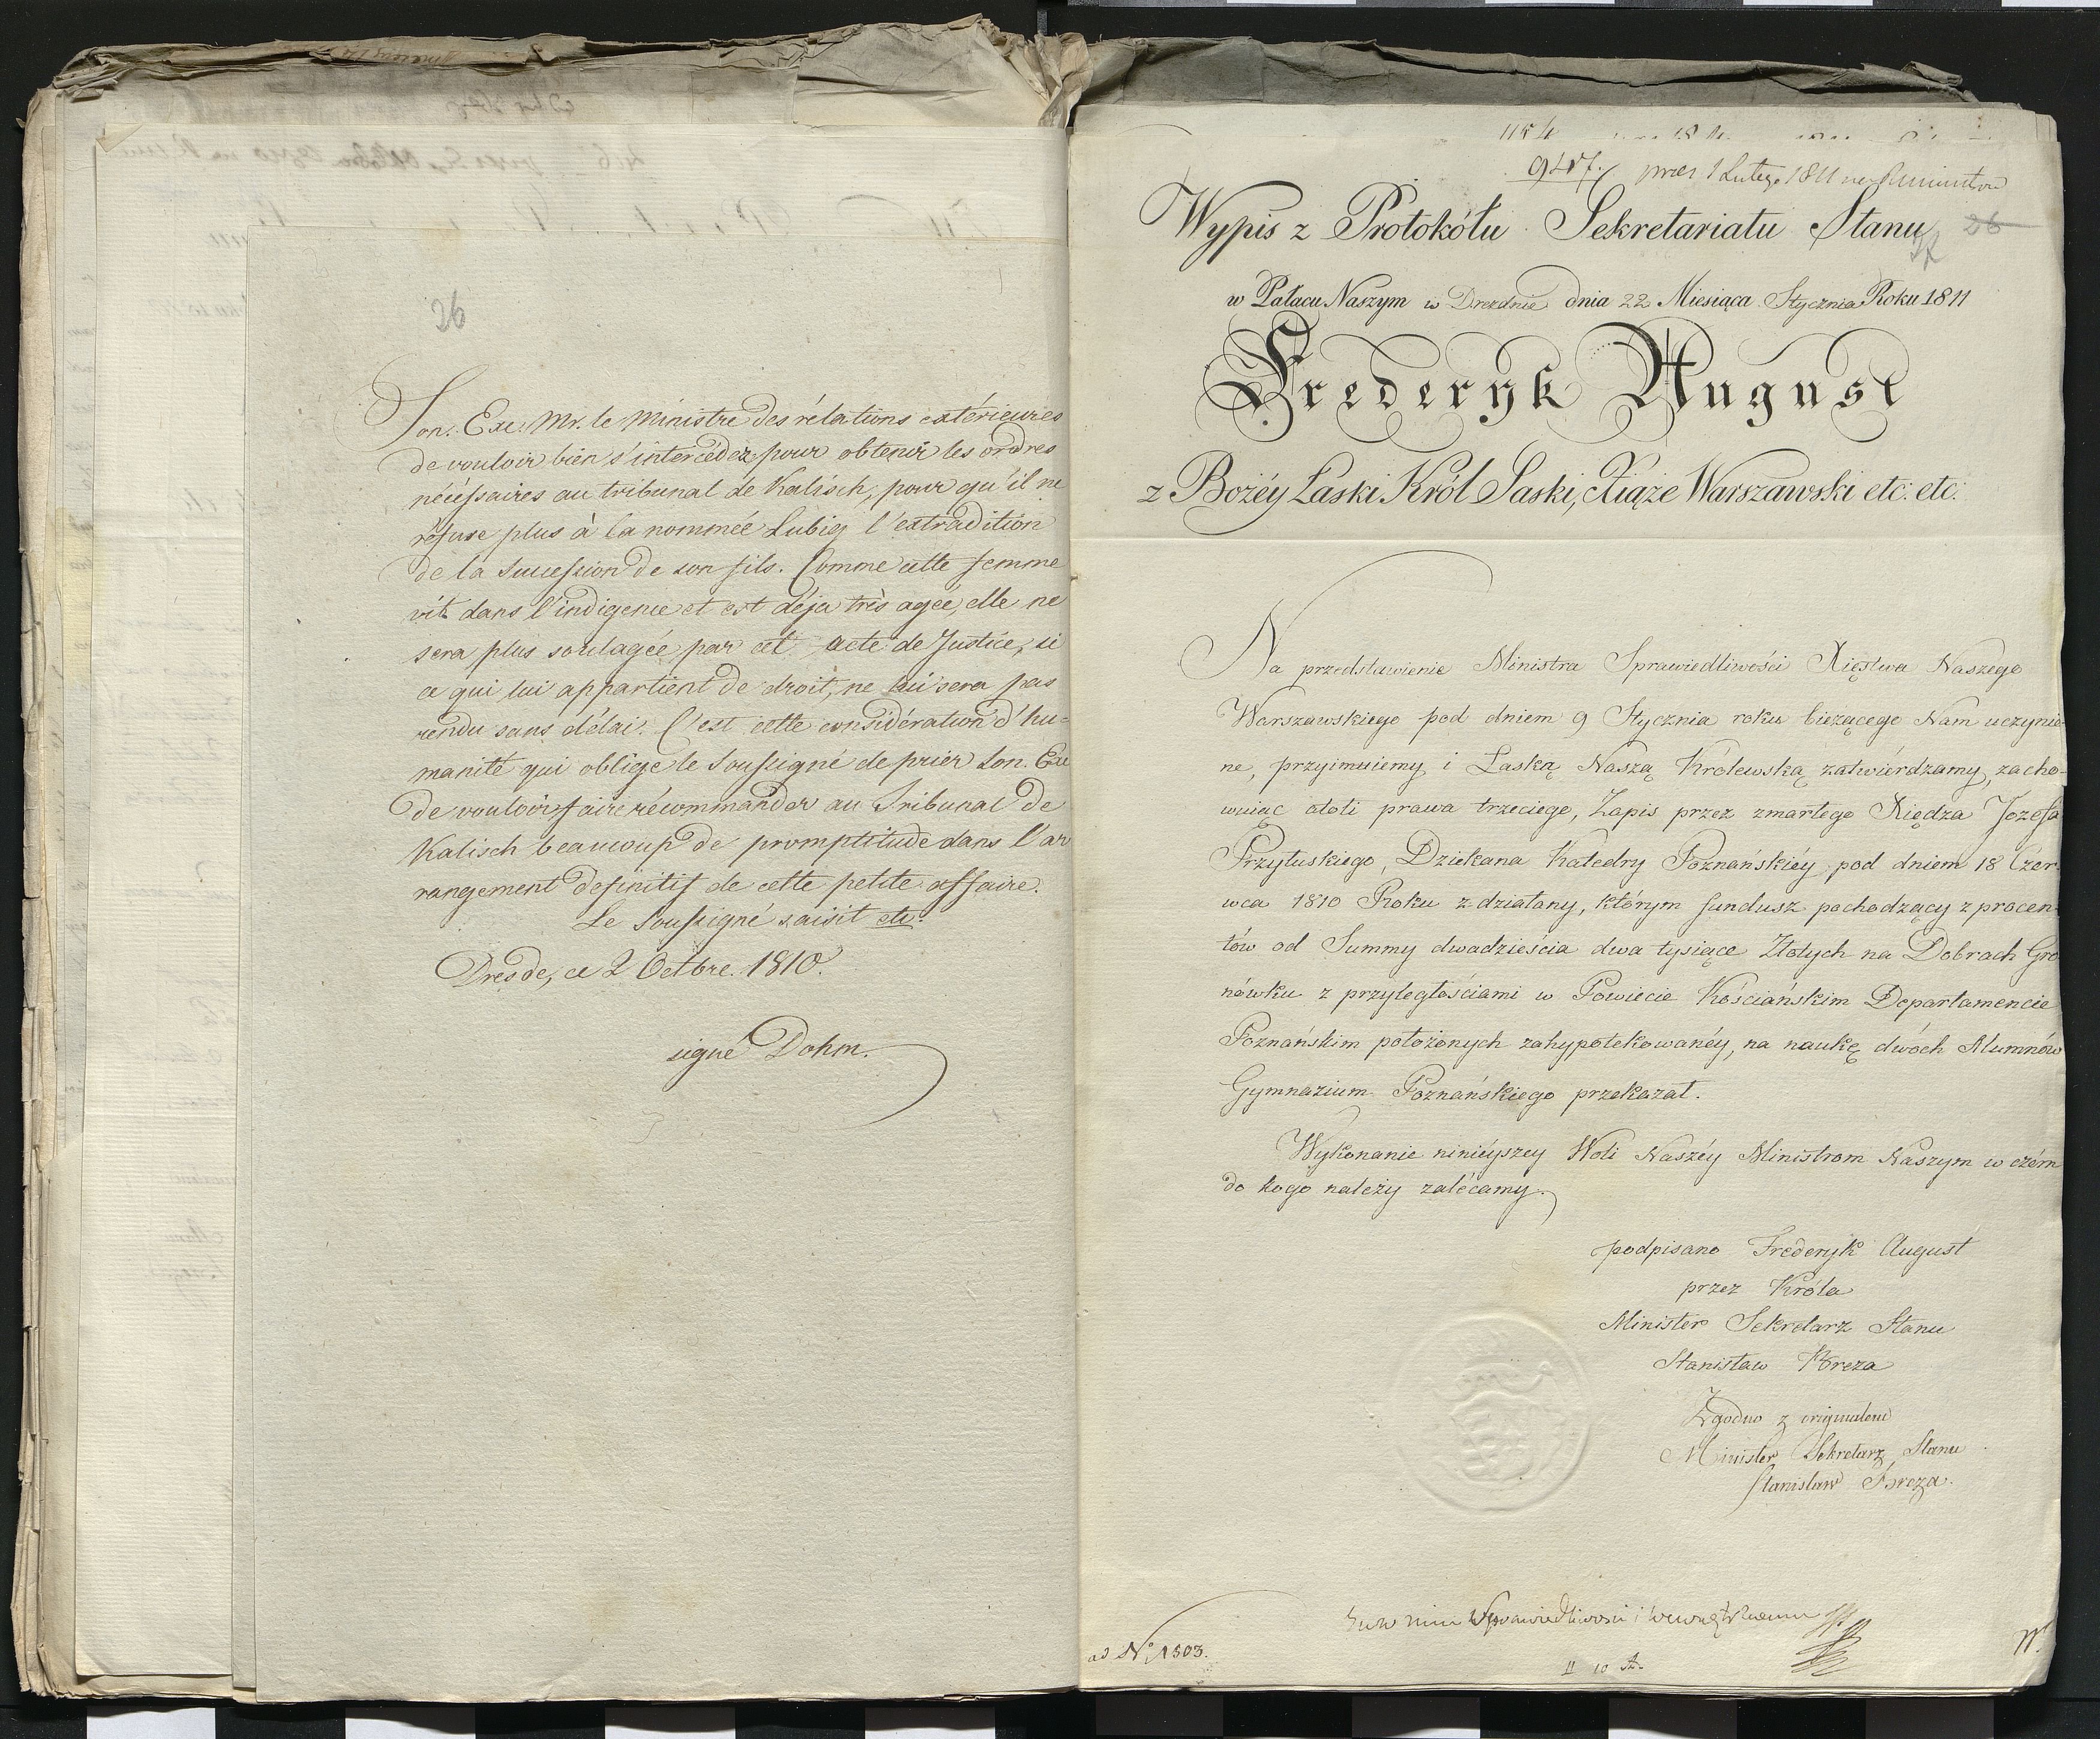 26
Son. Exc. Mr. le Ministre des rélations extérieures
de vouloir bien s'intercéder pour obtenir les ordres
nécéssaires au tribunal de Kalisch, pour qu'il ne
réfuse plus à la nommée Lubig l'extradition
de la Succession de son fils. Comme cette femme
vit dans l'indigence et est déja très agée, elle ne
sera plus soulagée par cet acte de Justice, si
ce qui lui appartient de droit, ne lui sera pas
rendu sans délai. C'est cette considération d'hu-
manité qui oblige le Soussigné de prier Son. Exc
de vouloir faire récommander au Tribunal de
Kalisch beaucoup de promptitude dans l'ar
rangement définitif de cette petite affaire.
Le Soussigné saisit etc.
Dresde, ce 2 Octbre. 1810.
signé Dohm.
9407. prez 1 Lutego 1811
Wypis z Protokółu Sekretariatu Stanu 26
w Pałacu Naszym w Dreznie dnia 22 Miesiąca Stycznia Roku 1811
Frederyk August
z Bożéy Łaski Król Saski, Xiąże Warszawski etc. etc.
Na przedstawienie Ministra Sprawiedliwości Xięstwa Naszego
Warszawskiego pod dniem 9 Stycznia roku bieżącego Nam uczynio-
ne, przyimuiemy i Łaską Naszą Królewską zatwiérdzamy, zacho-
wuiąc atoli prawa trzeciego, Zapis przez zmarłego Xiędza Jozefa
Przyłuskiego, Dziekana Katedry Poznańskiéy pod dniem 18 Czer-
wca 1810 Roku zdziałany, którym fundusz pochodzący z procen-
tów od Summy dwadzieścia dwa tysiące Złotych na Dobrach Gro
nówku z przyległościami w Powiecie Kościańskim Departamencie
Poznańskim położonych zahypotekowanéy, na naukę dwóch Alumnów
Gymnazium Poznańskiego przekazał.
Wykonanie ninieyszey Woli Naszéy Ministrom Naszym w czém
do kogo należy zalécamy.
podpisano Frederyk August
przez Króla
Minister Sekretarz Stanu
Stanisław Breza
Zgodno z oryginałem
Minister Sekretarz Stanu
Stanisław Breza.
ad No. 1503.